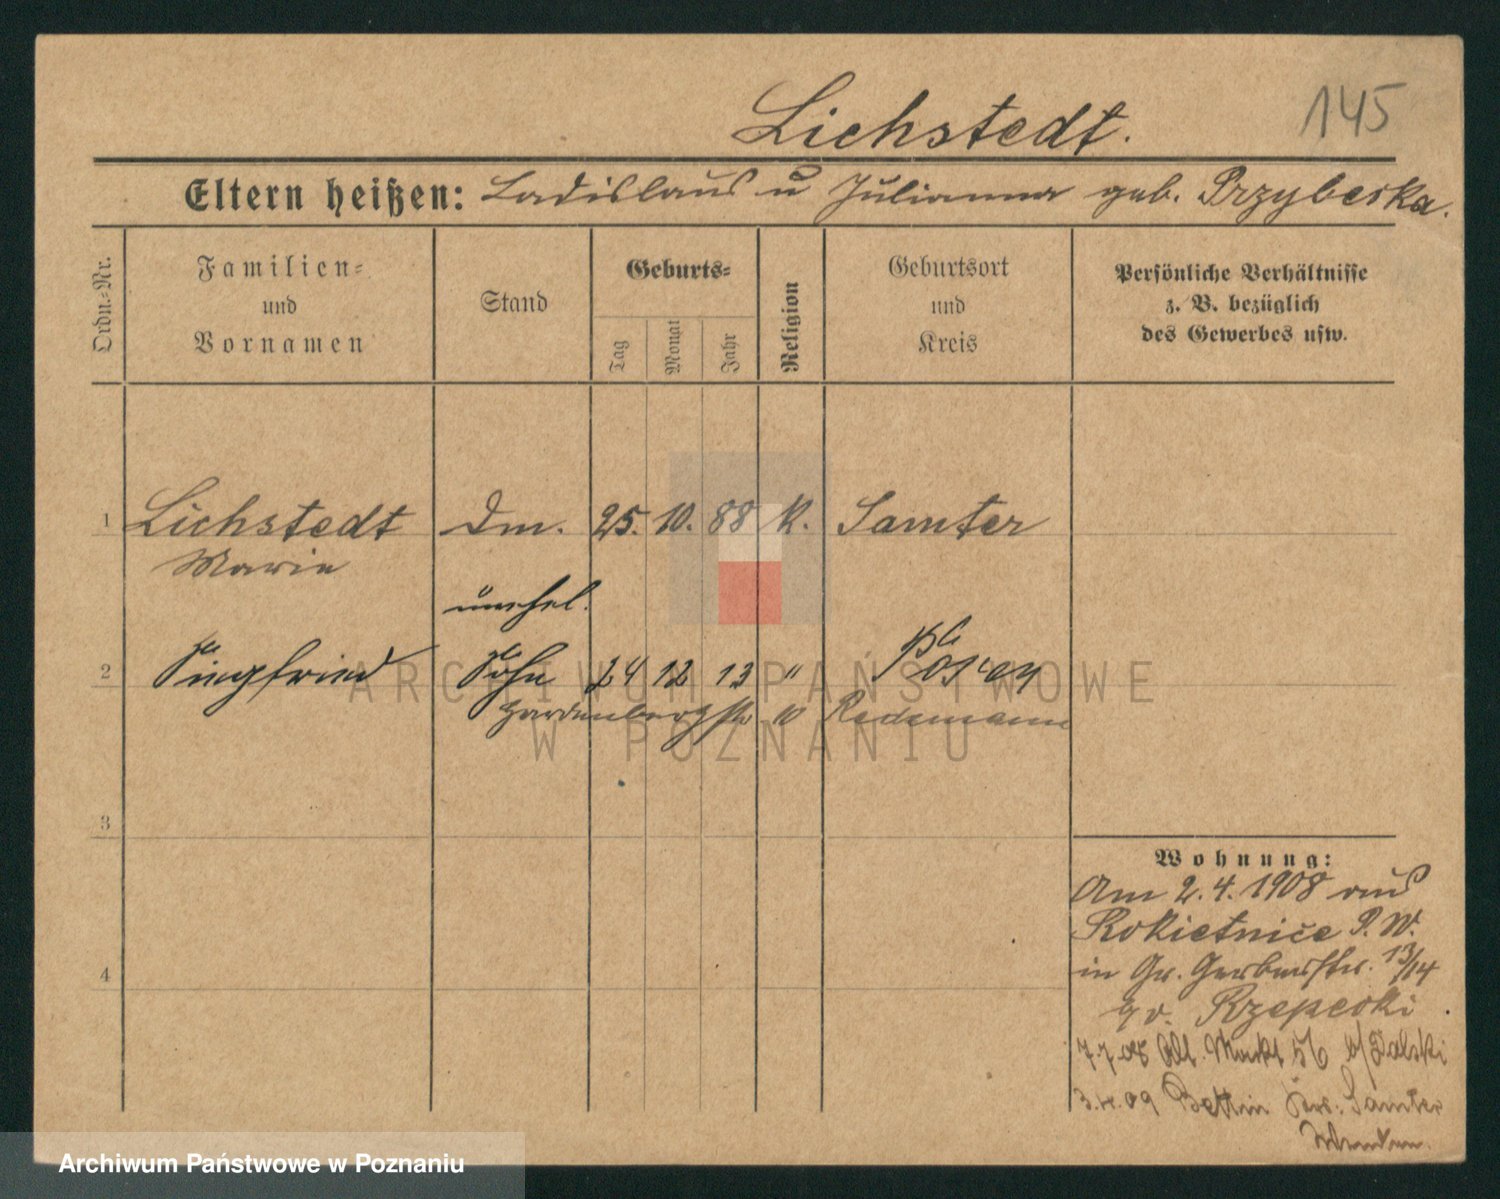 145
Lichstedt.
Eltern heißen: Ladislaus u Julianna geb. Przybeska.
Ordn.-Nr.
Familien-
und
Vornamen
Stand
Geburts-
Tag
Monat
Jahr
Religion
Geburtsort
und
Kreis
Persönliche Verhältnisse
z. B. bezüglich
des Gewerbes usw.
1 Lichstedt Dm. 25. 10. 88 K. Samter
Marie
unehel.
2 Siegfried Sohn 24 12 13 " Posen
Hardenbergstr 10 Redemann
3
4
Wohnung:
Am 2. 4. 1908 aus
Rokietnice P. W.
in Gr. Gerberstr. 13/14
Rzepecki
7.7.08 Alt. Markt 56 b/
3.4.09 Samter
ARCHIWUM PAŃSTWOWE
W POZNANIU
Archiwum Państwowe w Poznaniu